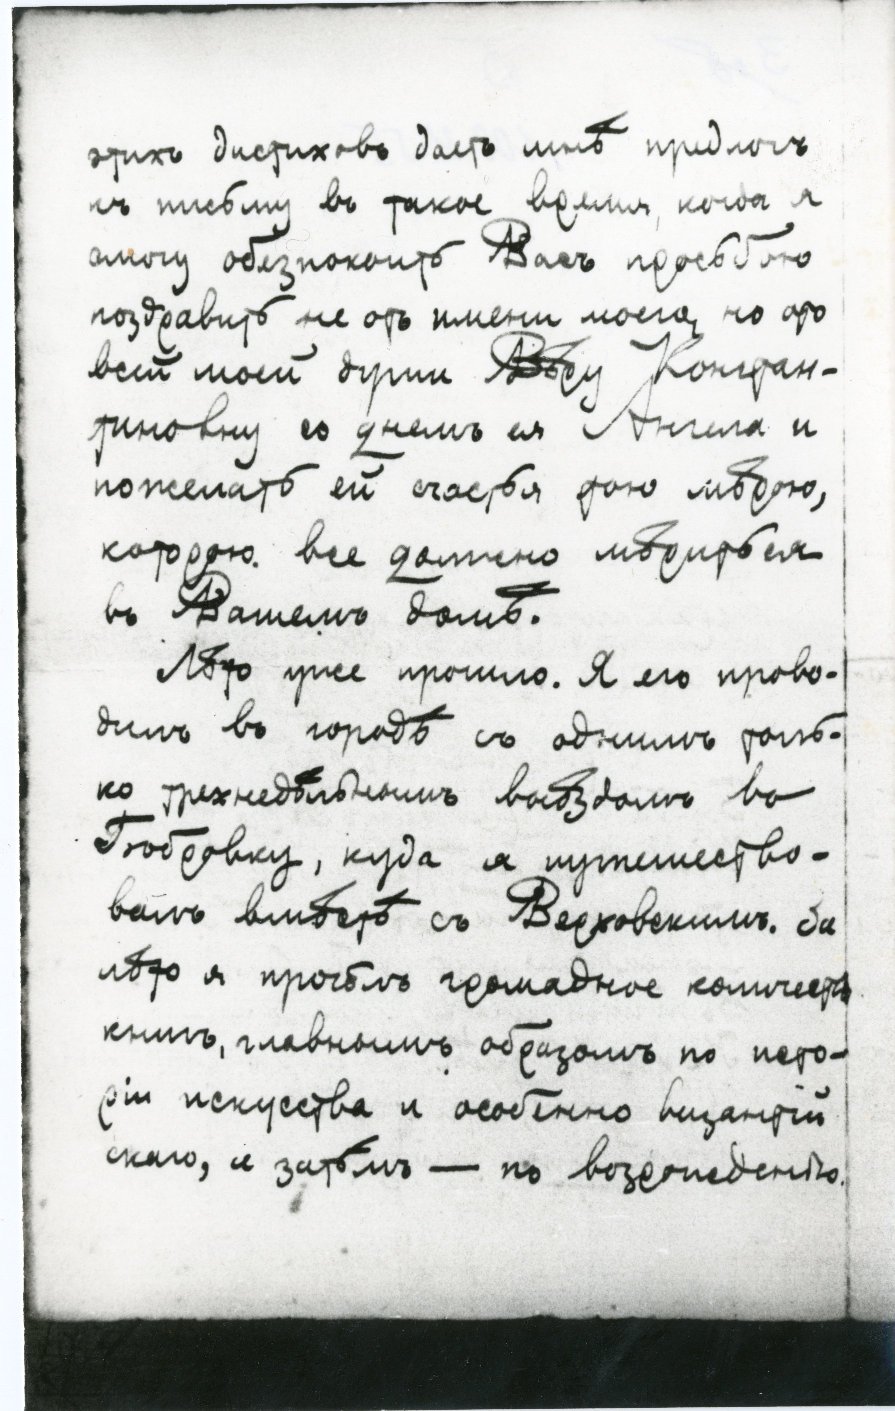 этихъ дистиховъ дастъ мнѣ предлогъ
къ письму въ такое время, когда я
смогу обезпокоить Васъ просьбою
поздравить не отъ имени моего, но ото
всей моей души Вѣру Констан-
тиновну со днемъ ея Ангела и
пожелать ей счастья тою мѣрою,
которою все должно мѣриться
въ Вашемъ домѣ.
Лѣто уже прошло. Я его прово-
дилъ въ городѣ съ однимъ толь-
ко трехнедѣльнымъ выѣздомъ во
Бобровку, куда я путешество-
валъ вмѣстѣ съ Верховскимъ. За
лѣто я прочелъ громадное количество
книгъ, главнымъ образомъ по исто-
ріи искусства и особенно византій
скаго, а затѣмъ — по возрожденію.